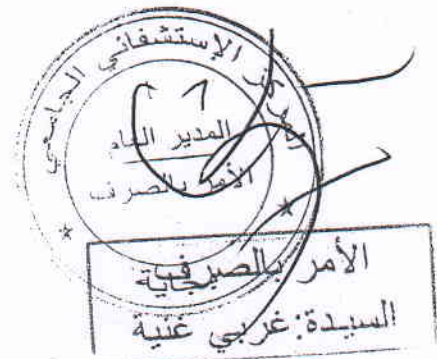 الإستشفائي الجامعي
المدير العام
الأمر بالصرف
الأمر بالصرف
بجاية
السيدة: غربي غنية